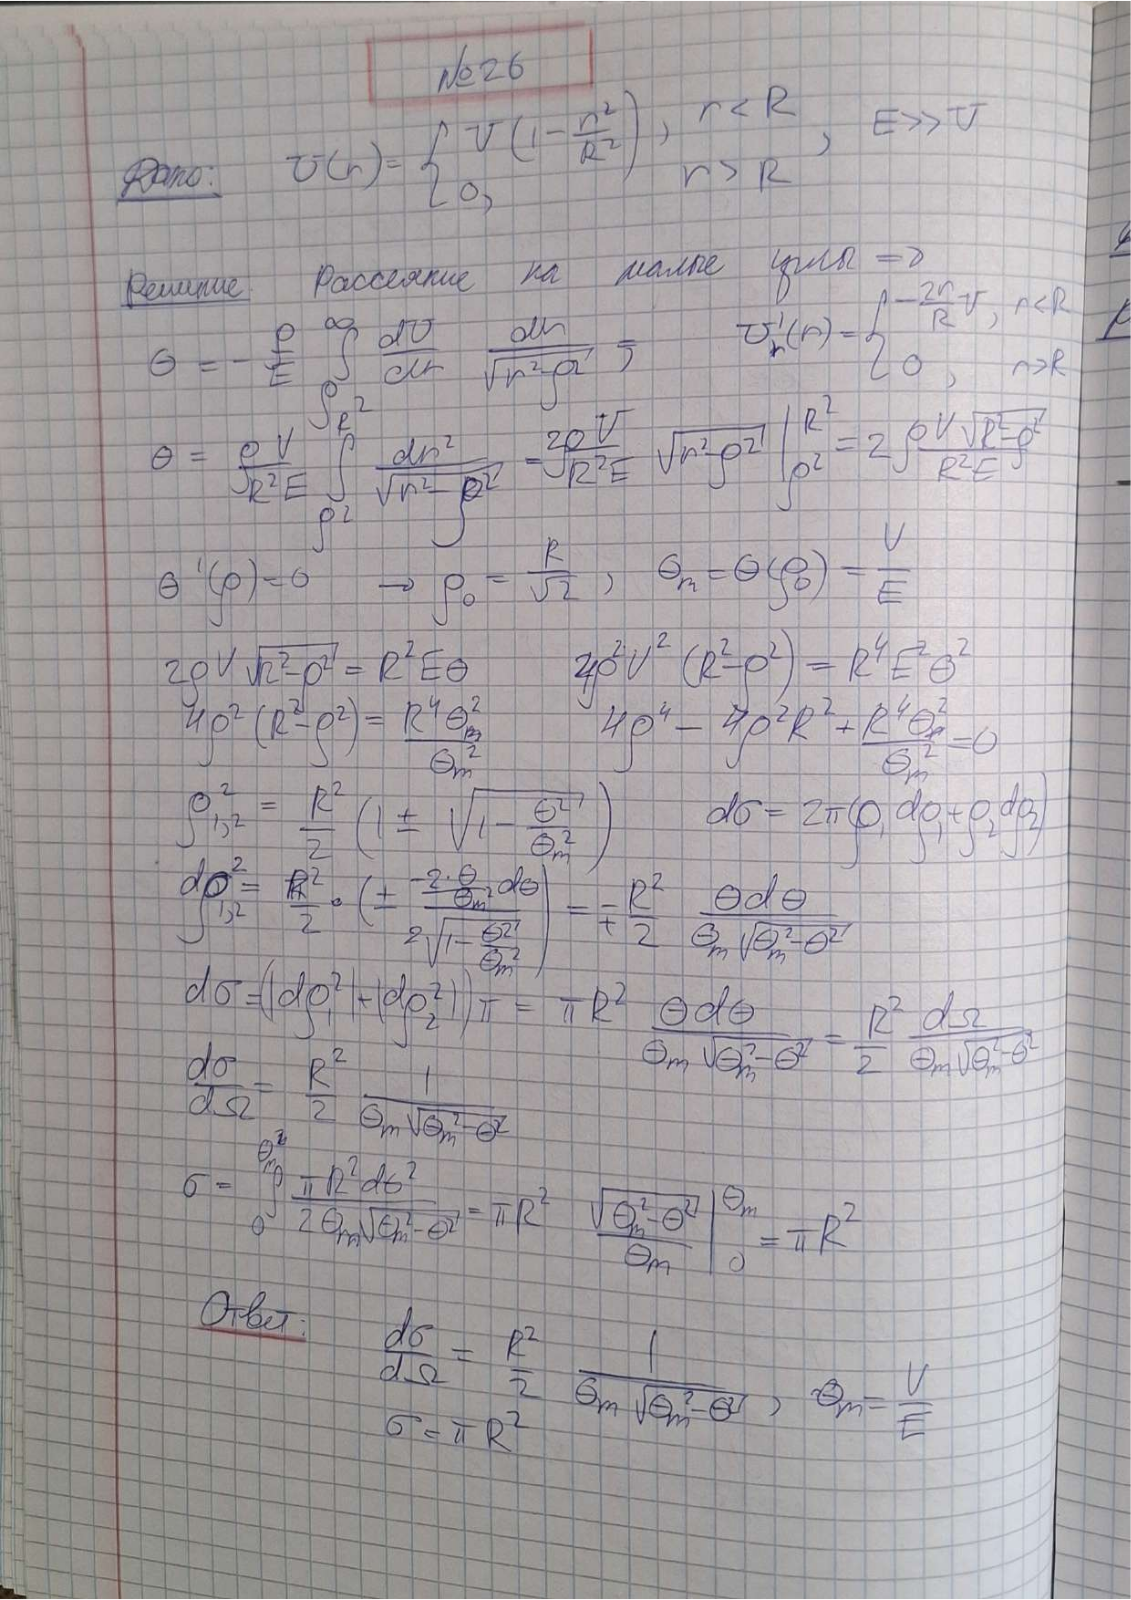 №26
Дано: U(r) = { V(1 - r²/R²), r < R , E >> V
0, r > R
Решение. Рассеяние на малые углы =>
θ = -ρ/E ∫_ρ^∞ dU/dr dr/√(r²-ρ²) ; U'_r(r) = { -2r/R V, r<R
0, r>R
θ = ρV/R²E ∫_{ρ²}^{R²} dr²/√(r²-ρ²) = 2ρV/R²E √(r²-ρ²) |_{ρ²}^{R²} = 2ρV√(R²-ρ²)/R²E
θ'(ρ)=0 → ρ₀ = R/√2 , θm = θ(ρ₀) = V/E
2ρV√(r²-ρ²) = R²Eθ 4ρ²V²(R²-ρ²) = R⁴E²θ²
4ρ²(R²-ρ²) = R⁴θ²/θm² 4ρ⁴ - 4ρ²R² + R⁴θ²/θm² = 0
ρ²₁,₂ = R²/2 (1 ± √(1 - θ²/θm²)) dσ = 2π(ρ₁dρ₁+ρ₂dρ₂)
dρ²₁,₂ = R²/2 · (± (-2·θ/θm² dθ)/(2√(1-θ²/θm²))) = ∓ R²/2 θdθ/(θm√(θm²-θ²))
dσ = (|dρ₁²|+|dρ₂²|)π = πR² θdθ/(θm√(θm²-θ²)) = R²/2 dΩ/(θm√(θm²-θ²))
dσ/dΩ = R²/2 1/(θm√(θm²-θ²))
σ = ∫_0^{θm²} πR²dθ²/(2θm√(θm²-θ²)) = πR² √(θm²-θ²)/θm |_0^{θm} = πR²
Ответ: dσ/dΩ = R²/2 1/(θm√(θm²-θ²)) , θm = V/E
σ = πR²